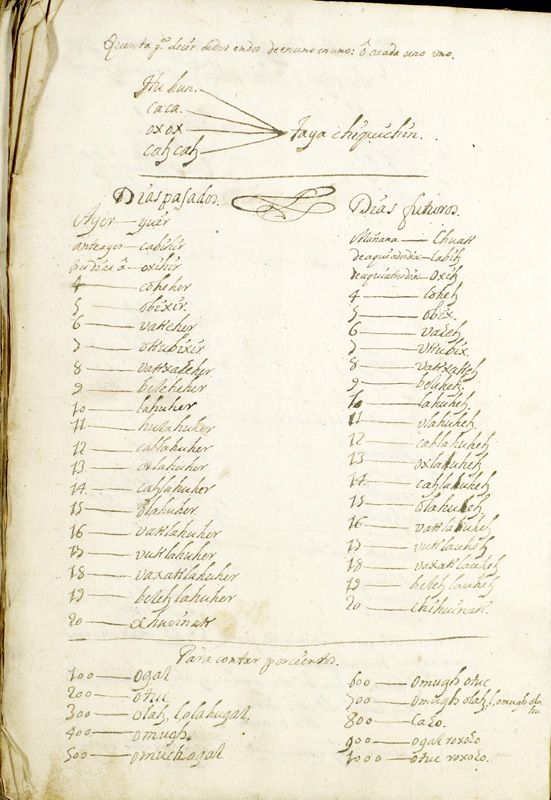 Quenta pa decir dedos endos de en uno en uno: ô acada uno vno.
Hu hun.
caca.
oxox
cah cah
Taya chiquichin.
Dias pasados.
Ayer — yuir
anteayer — cabihir
tres dias â — oxihir
4 — coheher
5 — obixir.
6 — vatteher
7 — vttubixir
8 — vattxaeher
9 — beleheher
10 — lahuher
11 — hulahuher
12 — cablahuher
13 — oxlahuher
14 — cahlahuher
15 — olahuher
16 — vatlahuher
17 — vuklahuher
18 — vaxaklahuher
19 — beleh lahuher
20 — xhuvinak
Dias futuros.
Mañana — Chuak
de aqui a dos dias — cabih
de aqui a tres dias — oxih
4 — coheh
5 — obix.
6 — vaeh
7 — vttubix.
8 — vatxakeh
9 — beleheh
10 — lahuheh
11 — vlahuheh
12 — cablahuheh
13 — oxlahuheh
14 — cahlahuheh
15 — olahuheh
16 — vaklahuheh
17 — vuklauheh
18 — vaxaklauheh
19 — beleh lauheh
20 — chihuinak
Para contar por cientos.
100 — ogal
200 — otuc
300 — olah, l, olahugal.
400 — omugh.
500 — omuch ogal
600 — omugh otuc
700 — omugh olah, l, omugh
800 — cao.
900 — ogal roxoo.
1000 — otuc roxoo.